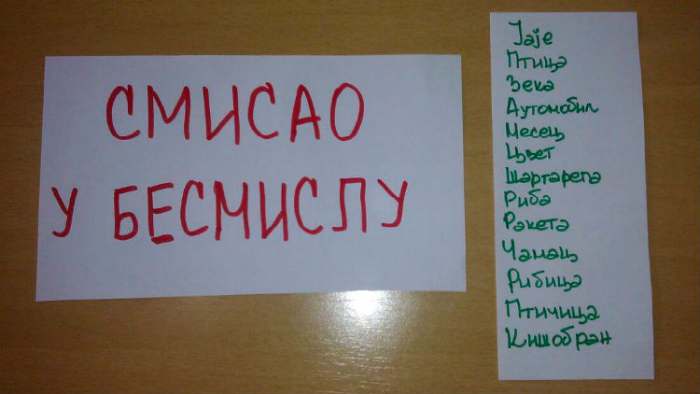 СМИСАО
У БЕСМИСЛУ
Јаје
Птица
Зека
Аутомобил
Месец
Цвет
Шаргарепа
Риба
Ракета
Чамац
Рибица
Птичица
Кишобран